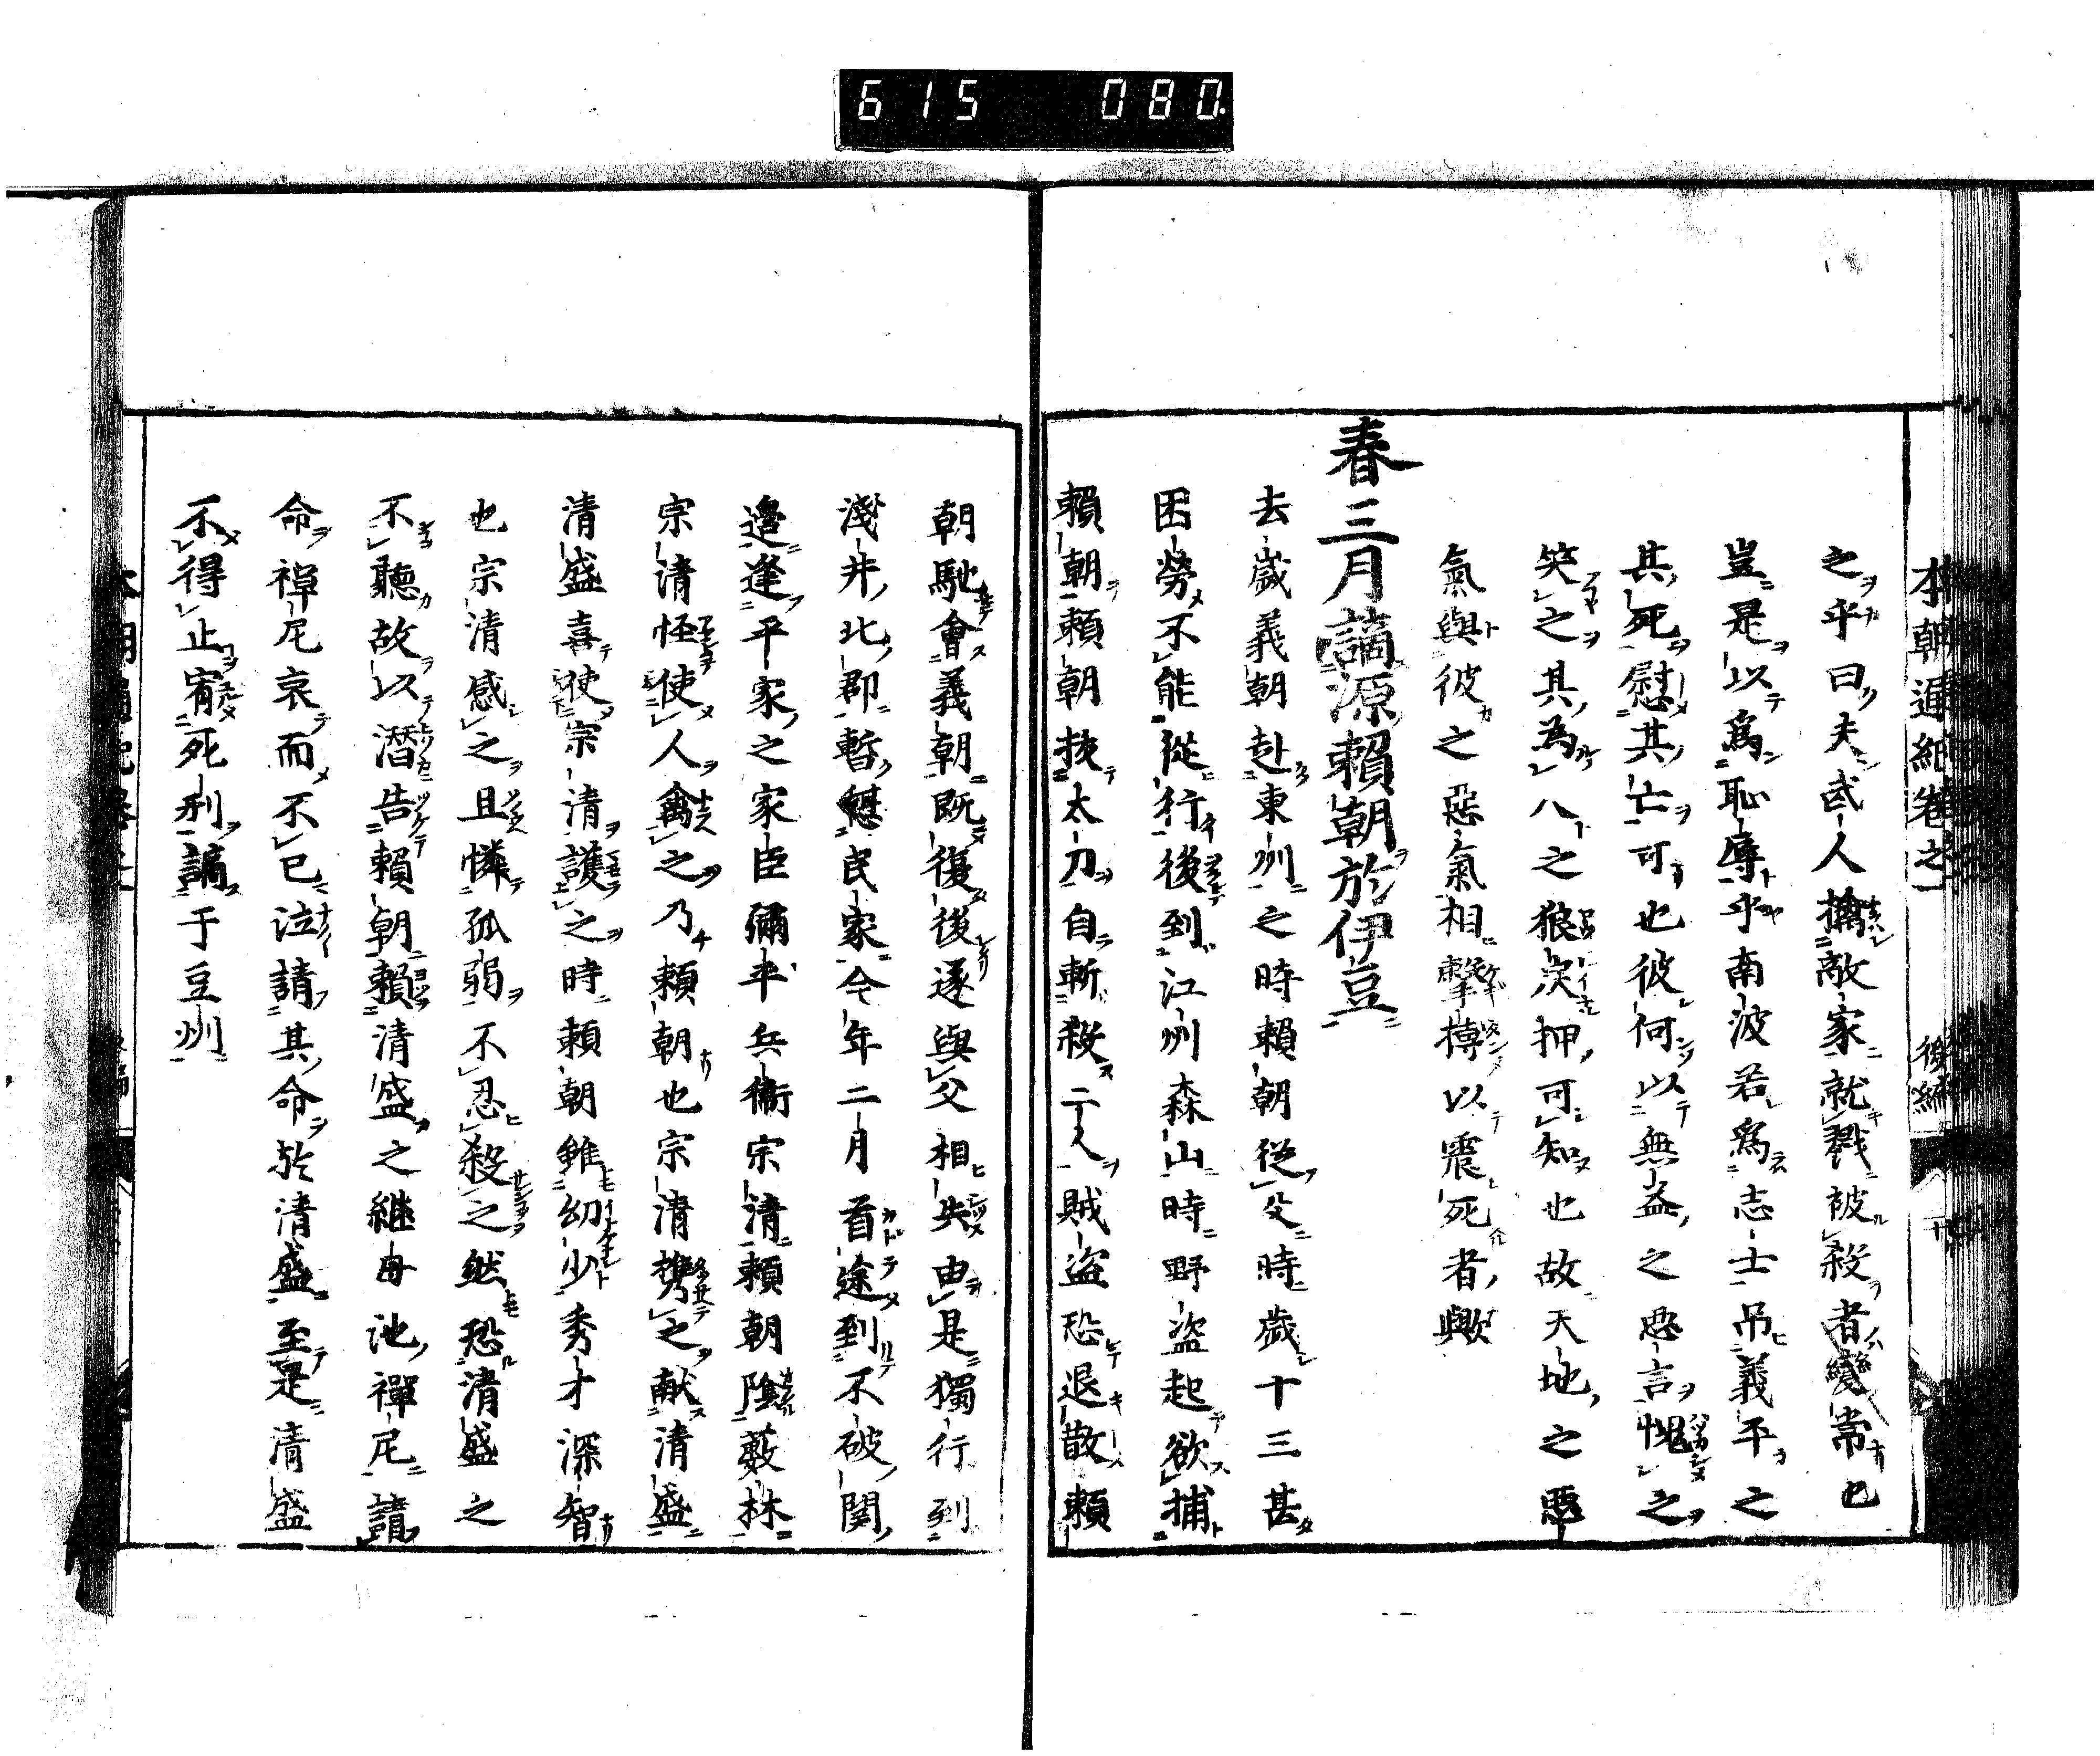 615 080
本朝通紀卷之 後編
之乎曰夫武人擒敵家就戮被殺者變常也
豈是以爲恥辱乎南波若爲志士吊義平之
其死慰其亡可也彼何以無益之惡言愧之
笑之其為八之狼戾押可知也故天地之惡
氣與彼之惡氣相擊搏以震死者歟
春三月謫源賴朝於伊豆
去歲義朝赴東州之時賴朝從父時歲十三甚
困勞不能從行後到江州森山時野盜起欲捕
賴朝賴朝拔太刀自斬殺二人賊盜恐退散賴
朝馳會義朝既復後遂與父相失由是獨行到
淺井北郡暫憇民家今年二月首途到不破関
邉逢平家之家臣彌平兵衞宗清賴朝陰藪林
宗清怪使人禽之乃賴朝也宗清携之献清盛
清盛喜使宗清護之時賴朝雖幼少秀才深智
也宗清感之且憐孤弱不忍殺之然恐清盛之
不聽故以潜告賴朝賴清盛之継母池禪尼請
命禪尼哀而不已泣請其命於清盛至是清盛
不得止宥死刑謫于豆州